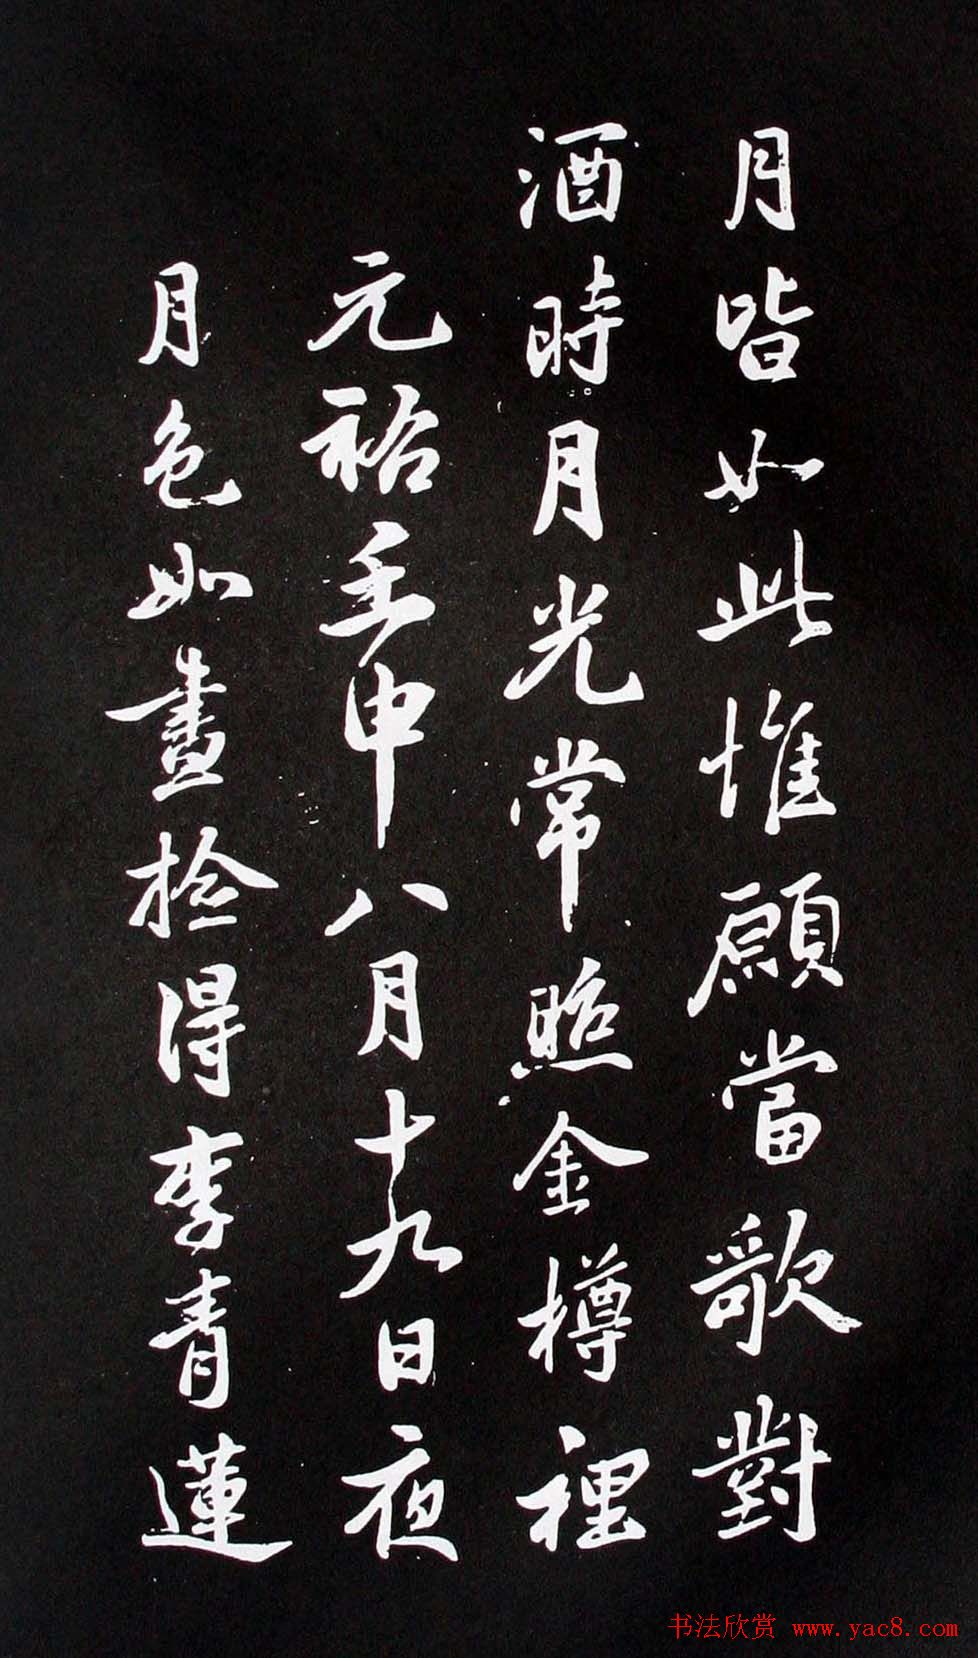 月皆如此惟願當歌對
酒時月光常照金樽裡
元祐壬申八月十九日夜
月色如畫拾得李青蓮
书法欣赏 www.yac8.com